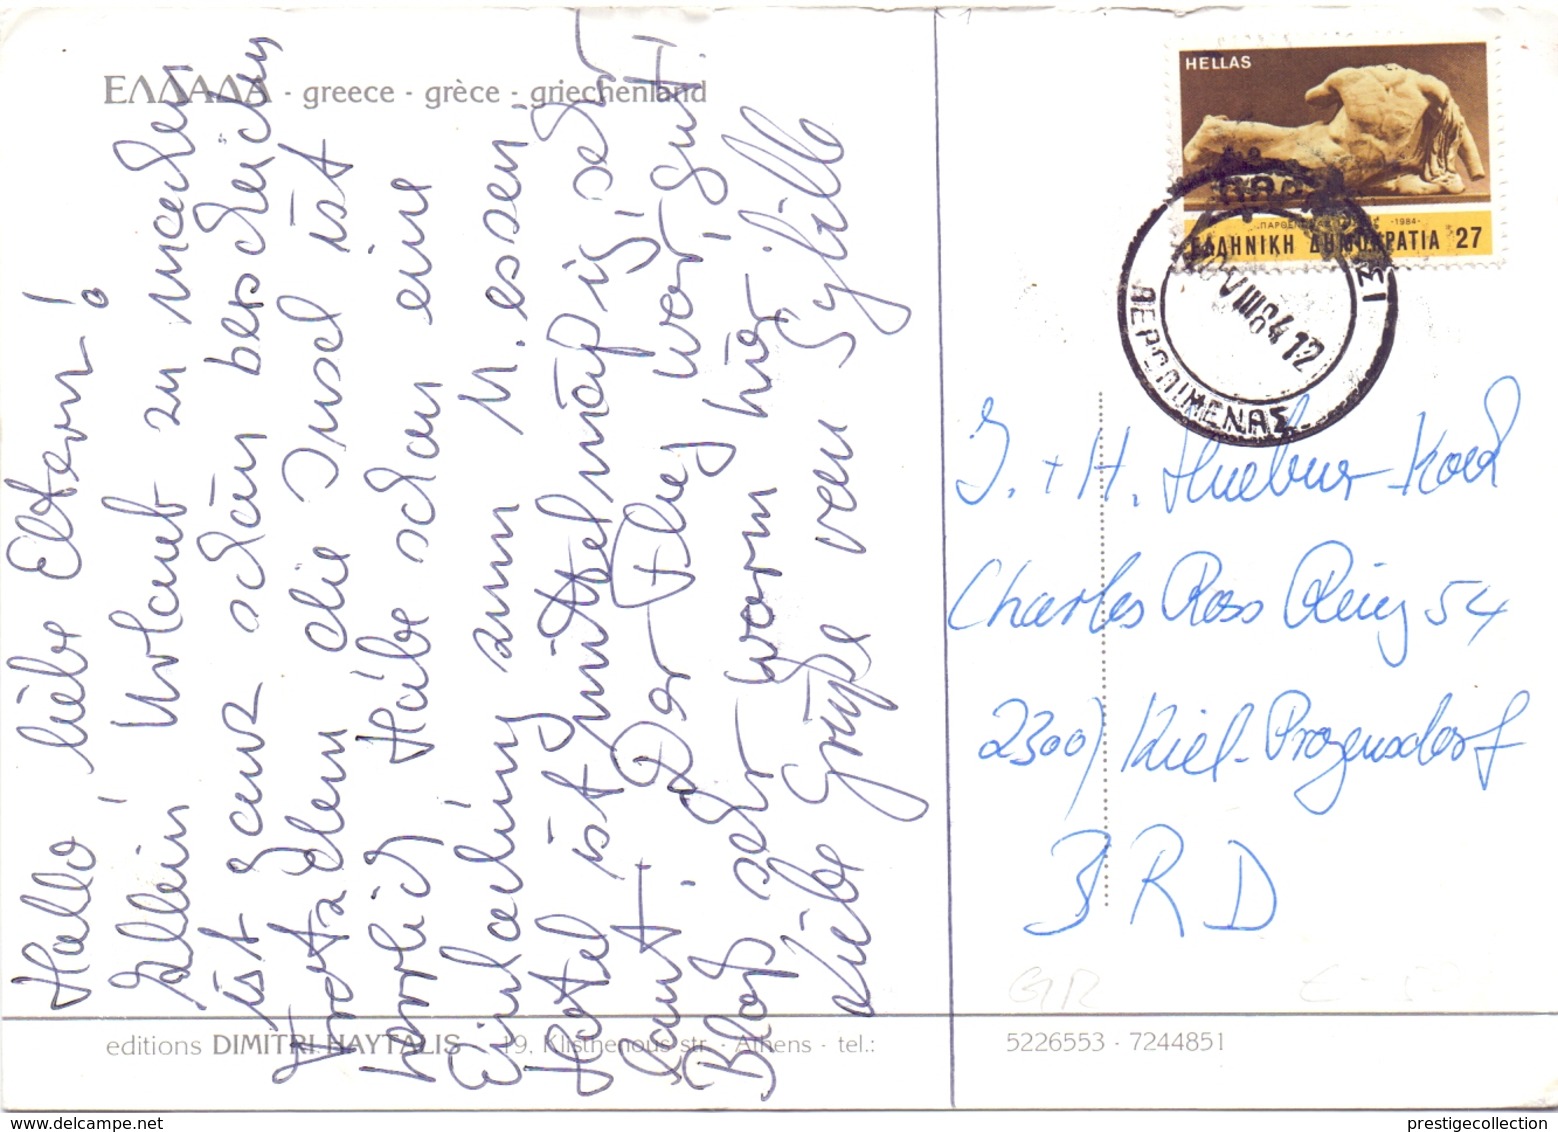 ΕΛΛΑΔΑ - greece - grèce - griechenland
Hallo, liebe Eltern!
Allein Urlaub zu machen
ist ganz schön bescheiden
Trotzdem die Insel ist
herrlich, Habe schon eine
Einladung zum M. essen
Hotel ist mittelmäßig, sehr
laut. Der Flug war gut!
Bloß sehr warm hier
Liebe Grüße von Sybille
HELLAS
ΠΑΡΘΕΝΩΝΑΣ 1984
ΕΛΛΗΝΙΚΗ ΔΗΜΟΚΡΑΤΙΑ 27
VIII 84 12
ΑΕΡΟΛΙΜΕΝΑΣ
J. + H. Huebner-Koch
Charles Ross Ring 54
2300 Kiel-Projensdorf
BRD
GR
editions DIMITRI HAYTALIS - 19, Klisthenous str. - Athens - tel.: 5226553 - 7244851
delcampe.net
prestigecollection